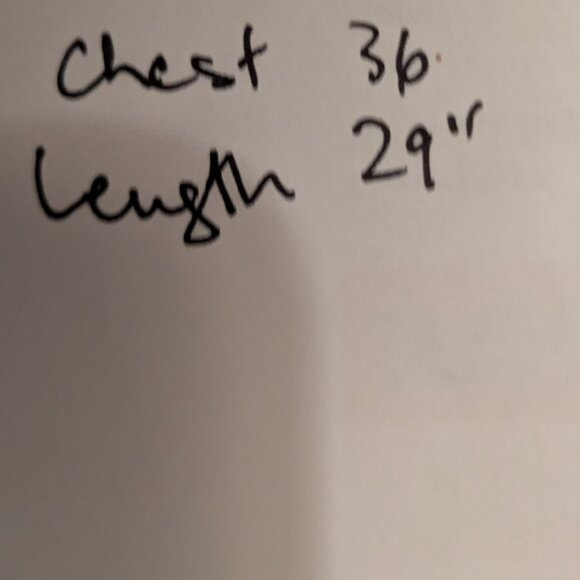 Chest 36
Length 29"